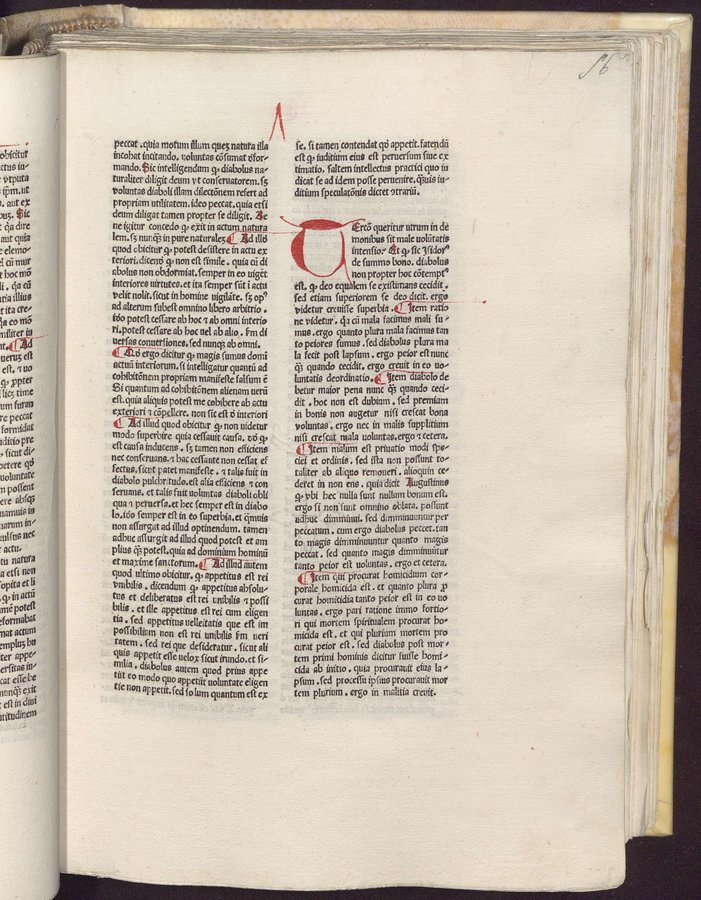 56
peccat. quia motum illum quez natura illa
incohat incitando. voluntas cōsumat ꝯfor-
mando. Sic intelligendum ꝙ diabolus na-
turaliter diligit deum vt conseruatorem. sꝫ
voluntas diaboli illam dilectōnem refert ad
propriam utilitatem. ideo peccat. quia etsi
deum diligat tamen propter se diligit. Be
ne igitur concedo ꝙ exit in actum natura
lem. sꝫ nunꝙ̄ in pure naturalez. Ad illō
quod obicitur ꝙ potest desistere in actu ex
teriori. dicenō ꝙ non est simile. quia cū di
abolus non obdormiat. semper in eo vigēt
interiores virtutes. et ita semper sūt ī actu
velit nolit. sicut in homine vigilāte. sꝫ opꝰ
ad alterum subest omnino libero arbitrio.
iōo potest cessare ab hoc ⁊ ab omni interio
ri. potest cessare ab hoc vel ab alio. fm di
uersas conuersiones. sed nunꝙ ab omni.
ergo dicitur ꝙ magis sumus domī
actuū interiorum. si intelligatur quantū ad
cohibitōnem propriam manifeste falsum ē
Si quantum ad cohibitōnem alienam verū
est. quia aliquis potest me cohibere ab actu
exteriori ⁊ cōpellere. non sic est ō interiori
Ad illud quod obicitur ꝙ non videtur
modo superbire quia cessauit causa. ꝙ
est causa inducens. sꝫ tamen non efficiens
nec conseruans. ⁊ hac cessante non cessat ef
fectus. sicut patet manifeste. ⁊ talis fuit in
diabolo pulchritudo. est alia efficiens ⁊ con
seruans. et talis fuit voluntas diaboli obli
qua ⁊ peruersa. et hec semper est in diabo
lo. iōo semper est in eo superbia. et ꝙmuis
non assurgat ad illud optinendum. tamen
adhuc assurgit ad illud quod potest et am
plius ꝙ̄ potest. quia ad dominium hominū
et maxime sanctorum. Ad illud autem
quod ultimo obicitur. ꝙ appetitus est rei
possibilis. dicendum ꝙ appetitus absolu-
tus et deliberatus est rei possibilis ⁊ possi
bilis. et ille appetitus est rei cum eligen
tia. sed appetitus velleitatis que est im
possibilium non est rei possibilis fm veri
tatem. sed rei que desideratur. sicut ali
quis appetit esse velox sicut irundo. et si-
milia. diabolus autem quod prius appe
tiit eo modo quo appetiit voluntate eligen
tie non appetit. sed solum quantum est ex
se. si tamen contendat ꝙ appetit. fatendū
est ꝙ iuditium eius est peruersum siue ex
timatio. saltem intellectus practici quo in
dicat se ad idem posse peruenire. ꝙ̄uis iu-
ditium speculatōnis dictet ꝯtrariū.
TErcō queritur utrum in de
monibus sit male volūtatis
intensio. Et ꝙ sic Isidorꝰ
de summo bono. diabolus
non propter hoc cōtemptꝰ
est. ꝙ deo equalem se existimans cecidit.
sed etiam superiorem se deo dicit. ergo
videtur creuisse superbia. Item ratio
ne videtur. qa cū mala facimus mali su-
mus. ergo quanto plura mala facimus tan
to peiores sumus. sed diabolus plura ma
la fecit post lapsum. ergo peior est nunc
ꝙ̄ quando cecidit. ergo creuit in eo vo-
luntatis deordinatio. Item diabolo de
betur maior pena nunc ꝙ̄ quando ceci-
dit. hoc non est dubium. sed premiam
in bonis non augetur nisi crescat bona
voluntas. ergo nec in malis supplitium
nisi crescat mala voluntas. ergo ⁊ cetera.
Item malum est priuatio modi spe-
ciei et ordinis. sed ista non possunt to-
taliter ab aliquo remoueri. alioquin ce-
deret in non ens. quia dicit Augustinus
ꝙ vbi hec nulla sunt nullum bonum est.
ergo si non sunt omnino oblata. possunt
adhuc dimminui. sed dimminuuntur per
peccatum. cum ergo diabolus peccet. tan
to magis dimminuuntur quanto magis
peccat. sed quanto magis dimminuuntur
tanto peior est voluntas. ergo et cetera.
Item qui procurat homicidum cor-
porale homicida est. et quanto plura ꝓ
curat homicidia tanto peior est in eo vo
luntas. ergo pari ratione immo fortio-
ri qui mortem spiritualem procurat ho-
micida est. et qui plurium mortem pro
curat peior est. sed diabolus post mor-
tem primi hominis dicitur fuisse homi-
cida ab initio. quia procurauit eius la-
psum. sed processu ipsius procurauit mor
tem plurium. ergo in malitia creuit.